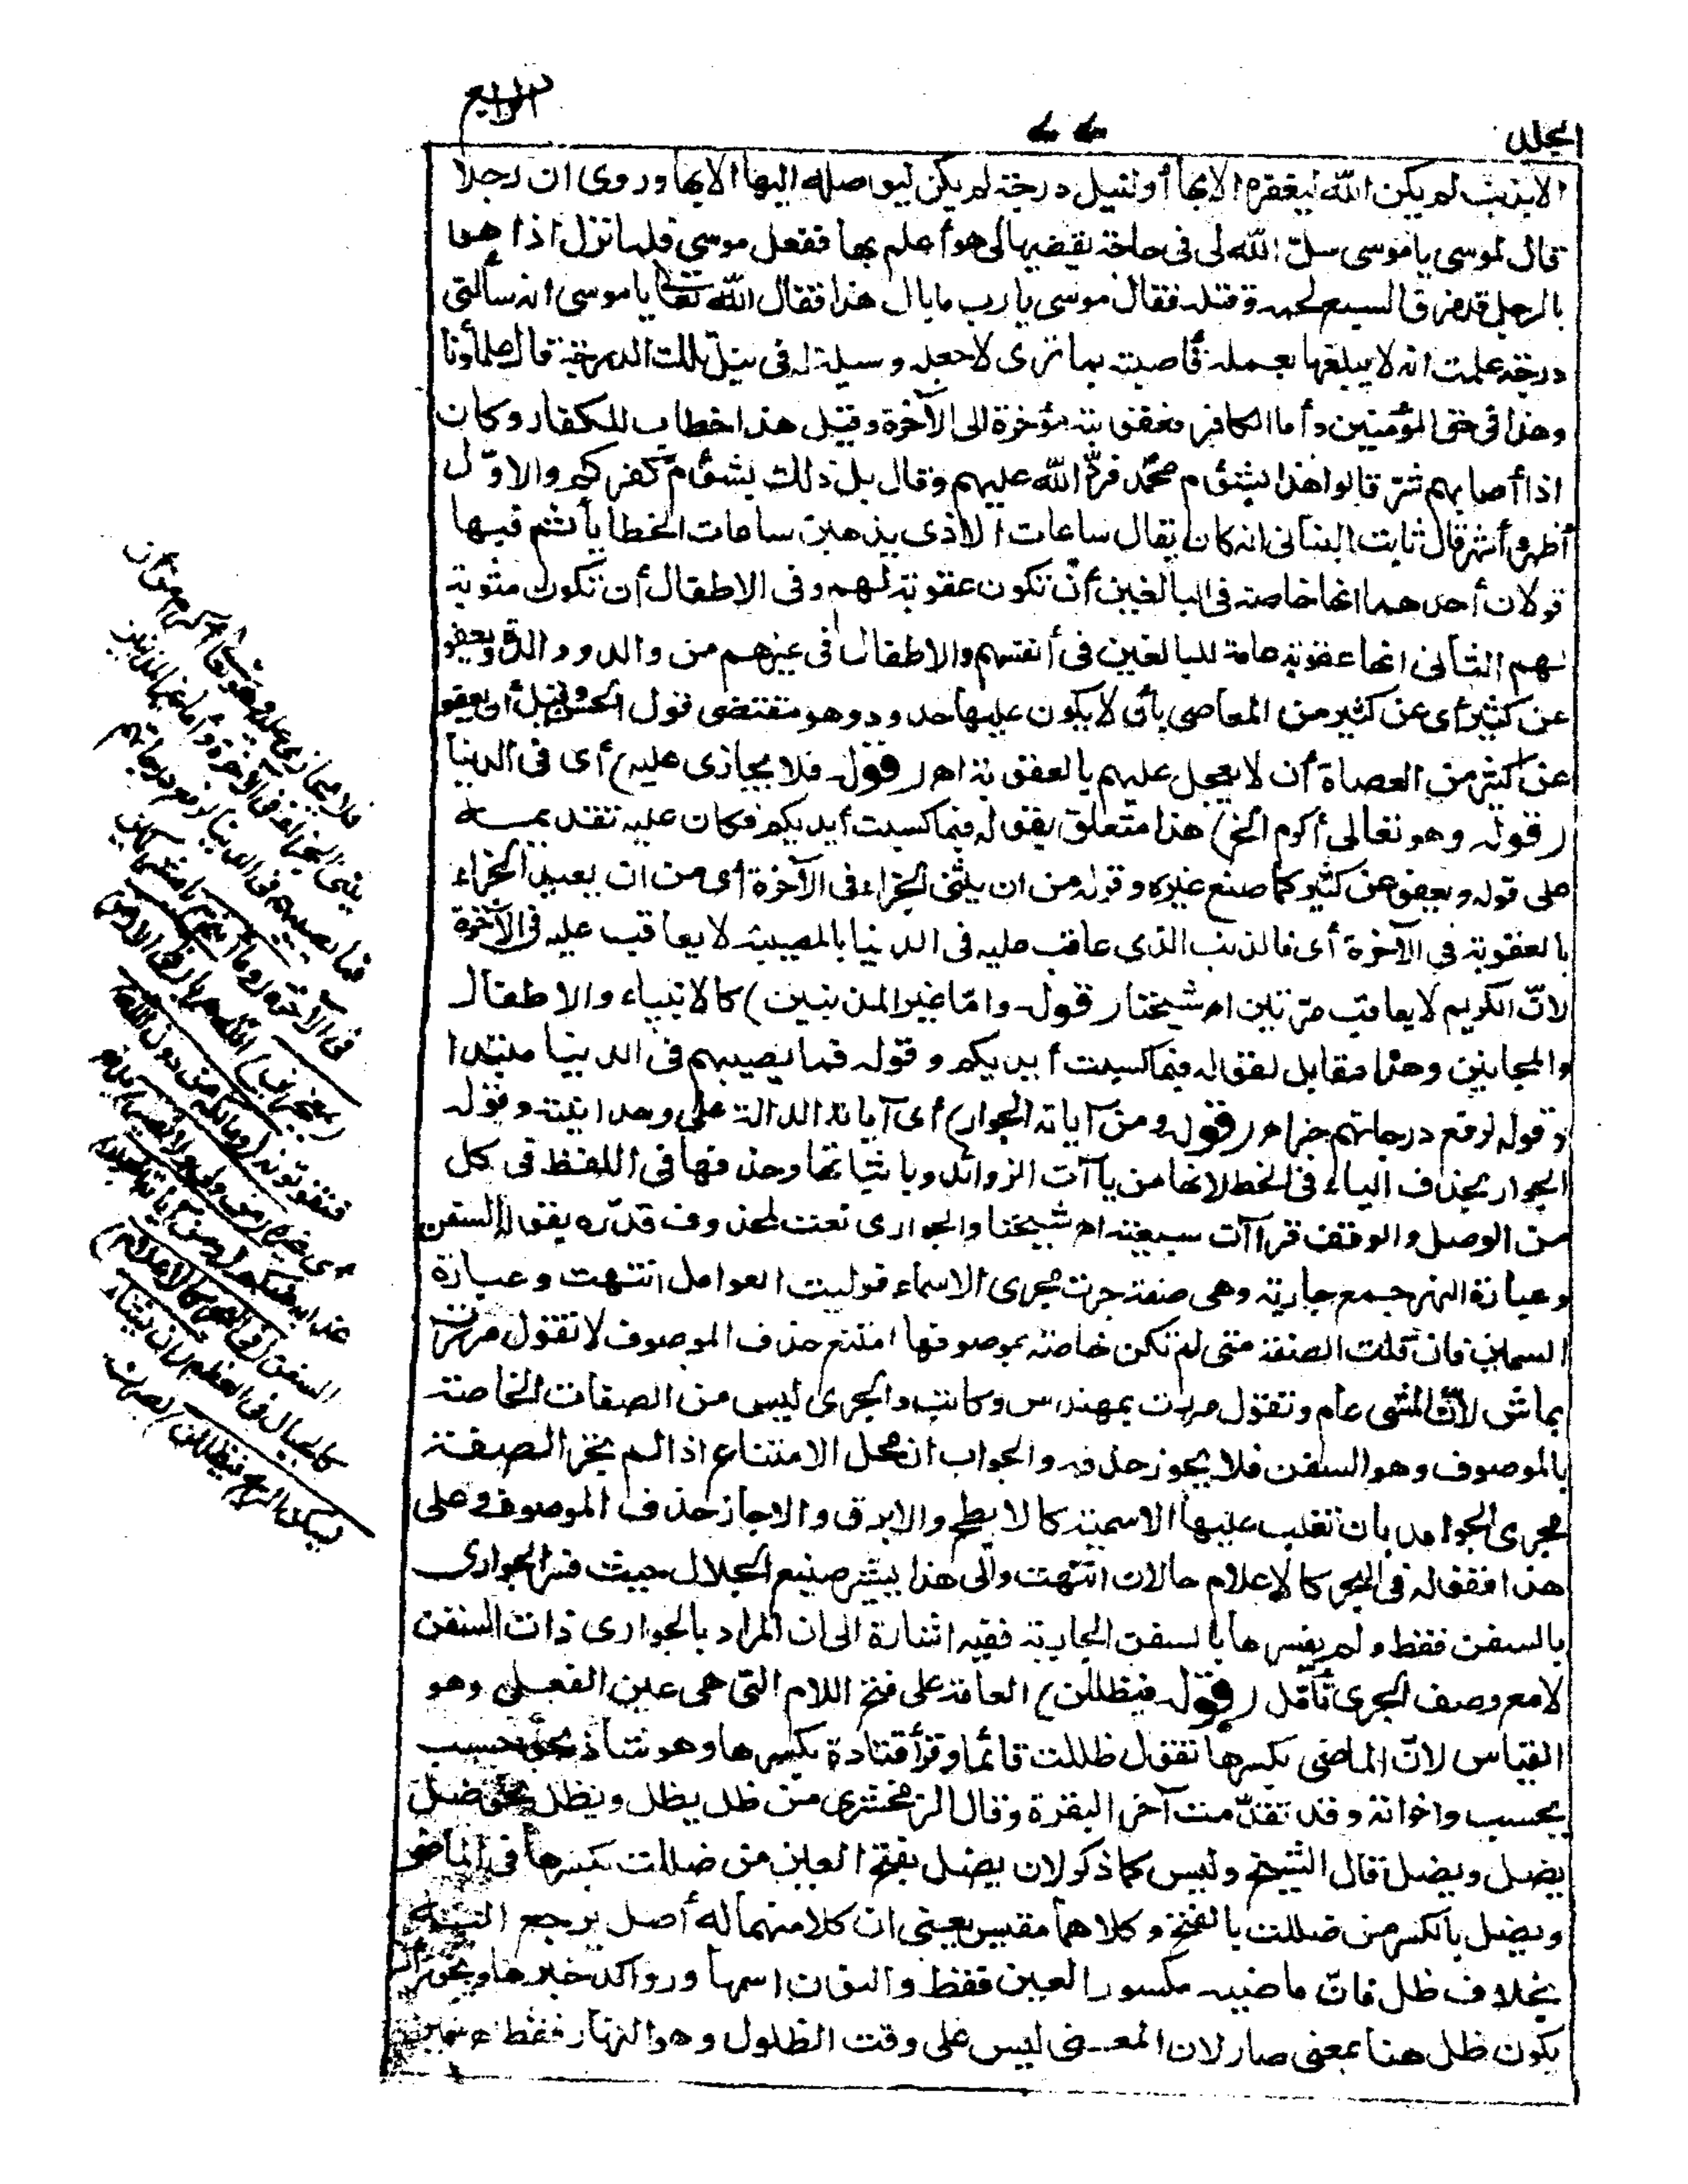 المجلد
٦٦
الرابع
الا بذنب لم يكن الله ليغفره الا بها أو لنيل درجة لم يكن ليوصله اليها الا بها وروى ان رجلا
قال لموسى يا موسى سل الله لى فى حاجة يقضيها لى هو أعلم بها ففعل موسى فلما نزل اذا هو
بالرجل قد مزق السبع لحمه وقتله فقال موسى يا رب ما بال هذا فقال الله تعالى يا موسى انه سألنى
درجة علمت انه لا يبلغها بعمله فأصبته بما ترى لأجعله وسيلة له فى نيل تلك الدرجة قال علماؤنا
وهذا فى حق المؤمنين وأما الكافر فعقوبته مؤخرة الى الآخرة وقيل هذا خطاب للكفار وكان
اذا أصابهم شر قالوا هذا بشؤم محمد فرد الله عليهم وقال بل ذلك بشؤم كفركم والاول
أظهر وأشهر قال ثابت البنانى انه كان يقال ساعات الاذى يذهبن ساعات الخطايا ثم فيها
قولان أحدهما انها خاصة فى البالغين أن تكون عقوبة لهم وفى الاطفال أن تكون مثوبة
لهم الثانى انها عقوبة عامة للبالغين فى أنفسهم والاطفال فى غيرهم من والد ووالدة ويعفو
عن كثير أى عن كثير من المعاصى بأن لا يكون عليها حدود وهو مقتضى قول الحسن وقيل أى يعفو
عن كثير من العصاة أن لا يعجل عليهم بالعقوبة اه (قوله فلا يجازى عليه) أى فى الدنيا
(قوله وهو تعالى أكرم الخ) هذا متعلق بقوله فبما كسبت أيديكم فكان عليه تقديمه
على قوله ويعفو عن كثير كما صنع غيره وقوله من ان يثنى الجزاء فى الآخرة أى من ان يعيد الجزاء
بالعقوبة فى الآخرة أى فالذنب الذى عاقب عليه فى الدنيا بالمصيبة لا يعاقب عليه فى الآخرة
لان الكريم لا يعاقب مرتين اه شيخنا (قوله واما غير المذنبين) كالانبياء والاطفال
والمجانين وهذا مقابل لقوله فبما كسبت أيديكم وقوله فما يصيبهم فى الدنيا مبتدا
وقوله لرفع درجاتهم خبر اه (قوله ومن آياته الجوار) أى آياته الدالة على وحدانيته وقوله
الجوار بحذف الياء فى الخط لانها من ياآت الزوائد وباثباتها وحذفها فى اللفظ فى كل
من الوصل والوقف قراآت سبعية اه شيخنا والجوارى نعت لمحذوف قدره بقوله السفن
وعبارة النهر جمع جارية وهى صفة جرت مجرى الاسماء فوليت العوامل انتهت وعبارة
السمين فان قلت الصفة متى لم تكن خاصة بموصوفها امتنع حذف الموصوف لا تقول مررت
بماش لأن المشى عام وتقول مررت بمهندس وكاتب والجرى ليس من الصفات الخاصة
بالموصوف وهو السفن فلا يجوز حذفه والجواب ان محل الامتناع اذا لم تجر الصفة
مجرى الجوامد بان تغلب عليها الاسمية كالابطح والابرق والا جاز حذف الموصوف وعلى
هذا فقوله فى البحر كالاعلام حالان انتهت والى هذا يشير صنيع الجلال حيث فسر الجوارى
بالسفن فقط ولم يفسرها بالسفن الجارية ففيه اشارة الى ان المراد بالجوارى ذات السفن
لا مع وصف الجرى تأمل (قوله فيظللن) العامة على فتح اللام التى هى عين الفعل وهو
القياس لان الماضى بكسرها تقول ظللت قائما وقرأ قتادة بكسرها وهو شاذ نحو حسب
يحسب واخواته وقد تقدمت آخر البقرة وقال الزمخشرى من ظل يظل ويظل نحو ضل
يضل ويضل قال الشيخ وليس كما ذكر لان يضل بفتح العين من ضللت بكسرها فى الماضى
ويضل بالكسر من ضللت بالفتح وكلاهما مقيس يعنى ان كلا منهما له أصل يرجع اليه
بخلاف ظل فان ماضيه مكسور العين فقط والنون اسمها ورواكد خبرها ويجوز أن
يكون ظل هنا بمعنى صار لان المعنى ليس على وقت الظلول وهو النهار فقط اه سمين
فلا يجازى عليه وهو تعالى أكرم من أن
يثنى الجزاء فى الآخرة وأما غير المذنبين
فما يصيبهم فى الدنيا لرفع درجاتهم
فى الآخرة (وما أنتم) يا مشركين
(بمعجزين) الله هربا (فى الارض)
فتفوتونه (وما لكم من دون الله)
أى غيره (من ولى ولا نصير) يدفع
عذابه عنكم (ومن آياته الجوار)
السفن (فى البحر كالاعلام)
كالجبال فى العظم (ان يشأ
يسكن الريح فيظللن) يصرن